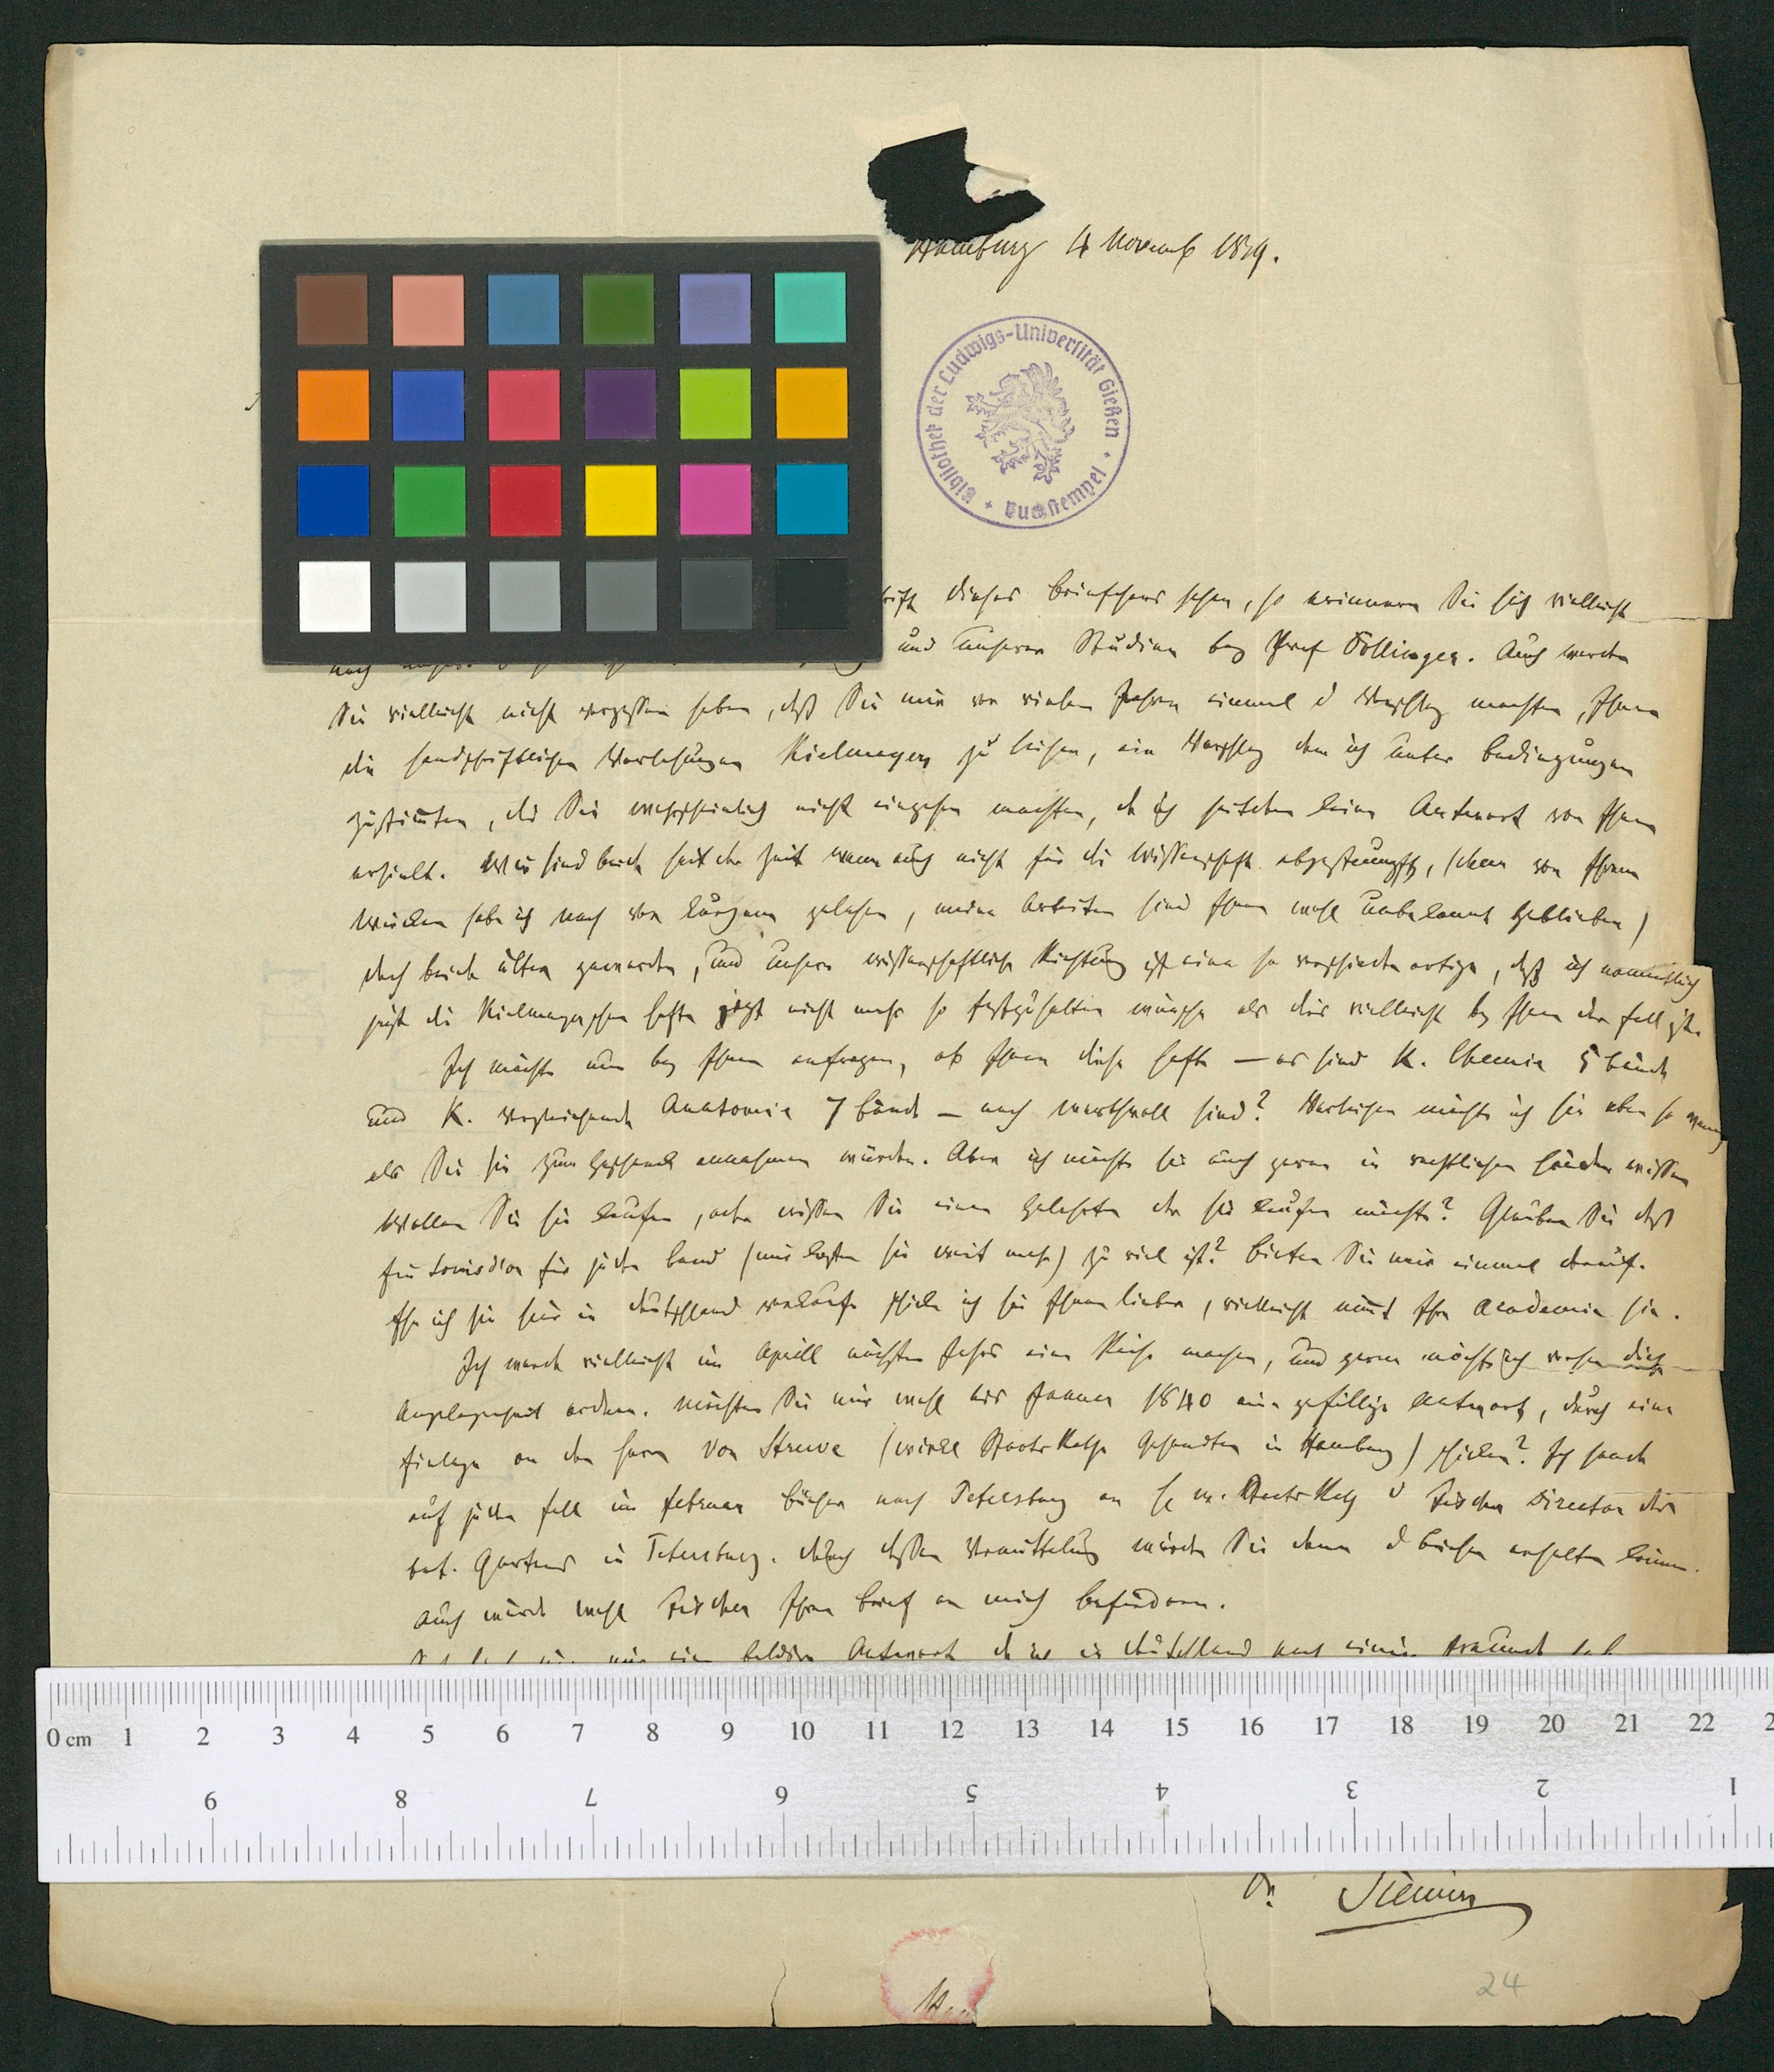 Hamburg 4 Novemb 1839.
Bibliothek der Ludwigs-Universität Gießen
dieses Briefchens sehen, so erinnern Sie sich vielleicht
und unserer Studien bey Prof Döllinger. Auch werden
Sie vielleicht nicht vergessen haben, daß Sie mir vor vielen Jahren einmal d Vorschlag machten, Ihnen
die handschriftlichen Vorlesungen Kielmeyers zu leihen, ein Vorschlag dem ich unter Bedingungen
zustimte, die Sie wahrscheinlich nicht eingehen mochten, da ich seitdem keine Antwort von Ihnen
erhielt. Wir sind beide seit der Zeit wenn auch nicht für die Wissenschaft abgestumpft, (denn von Ihrem
Wirken habe ich noch vor kurzem gelesen, meine Arbeiten sind Ihnen wohl unbekannt geblieben)
doch beide älter geworden, und unsere wissenschaftliche Richtung ist eine so verschiedenartige, daß ich namentlich
jetzt die Kielmeyerschen Hefte nicht mehr so festzuhalten wünsche als dies vielleicht bey Ihnen der Fall ist.
Ich möchte nun bey Ihnen anfragen, ob Ihnen diese Hefte — es sind K. Chemie 5 Bände
und K. vergleichende Anatomie 7 Bände — noch werthvoll sind? Verleihen möchte ich sie eben so wenig
als Sie sie zum Geschenk annehmen würden. Aber ich möchte sie auch gerne in rechtlichen Händen wissen
Wollen Sie sie kaufen, oder wissen Sie einen Gelehrten der sie kaufen möchte? Glauben Sie daß
Ein Louisd'or für jeden Band (mir kosten sie weit mehr) zu viel ist? Bieten Sie mir einmal darauf.
Ehe ich sie hier in Deutschland verkaufe schicke ich sie Ihnen lieber, vielleicht nimt Ihre Academie sie.
Ich werde vielleicht im Aprill nächsten Jahres eine Reise machen, und gerne möchte ich vorher diese
Angelegenheit ordnen. Möchten Sie mir wohl bis Januar 1840 eine gefällige Antwort, durch eine
Einlage an den Herrn von Struve (wirkl Staats Rath Gesandten in Hamburg) schicken? Ich sende
auf jeden Fall im Februar Bücher nach Petersburg an H w. Staats Rath v Fischer Director des
bot. Gartens in Petersburg. durch dessen Vermittelung würden Sie dann d Bücher erhalten können.
auch würde wohl Fischer Ihren Brief an mich befördern.
Antwort
0 cm 1 2 3 4 5 6 7 8 9 10 11 12 13 14 15 16 17 18 19 20 21 22 2
9 8 7 6 5 4 3 2 1
Dr.
24